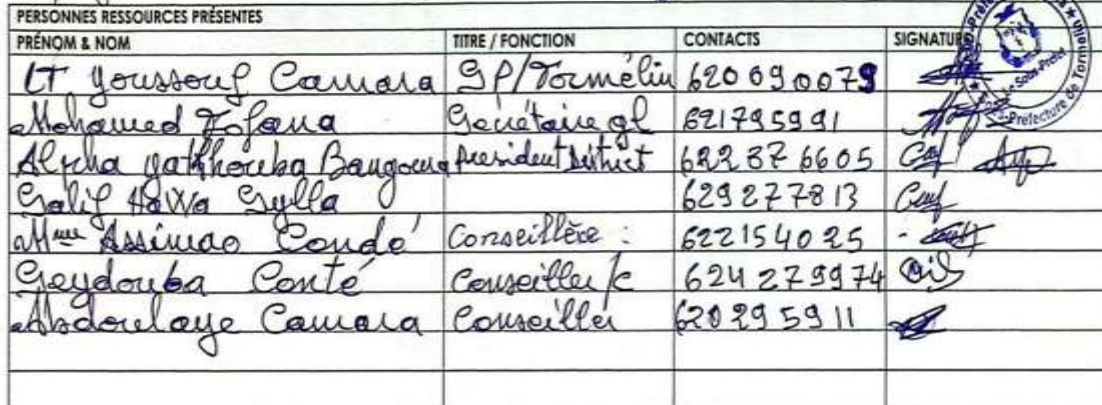 PERSONNES RESSOURCES PRÉSENTES
PRÉNOM & NOM TITRE / FONCTION CONTACTS SIGNATURE
LT Youssouf Camara SP/Tormélin 620690079
Mohamed Fofana Secrétaire gl 621795991
Alpha Yakhouba Bangoura President District 622876605
Salif Hawa Sylla 629277813
Mme Assimao Condé Conseillère : 622154025
Seydouba Conté Conseiller/c 624279974
Abdoulaye Camara Conseiller 620295911
Le Sous-Préfet
Sous-Préfecture de Tormelin